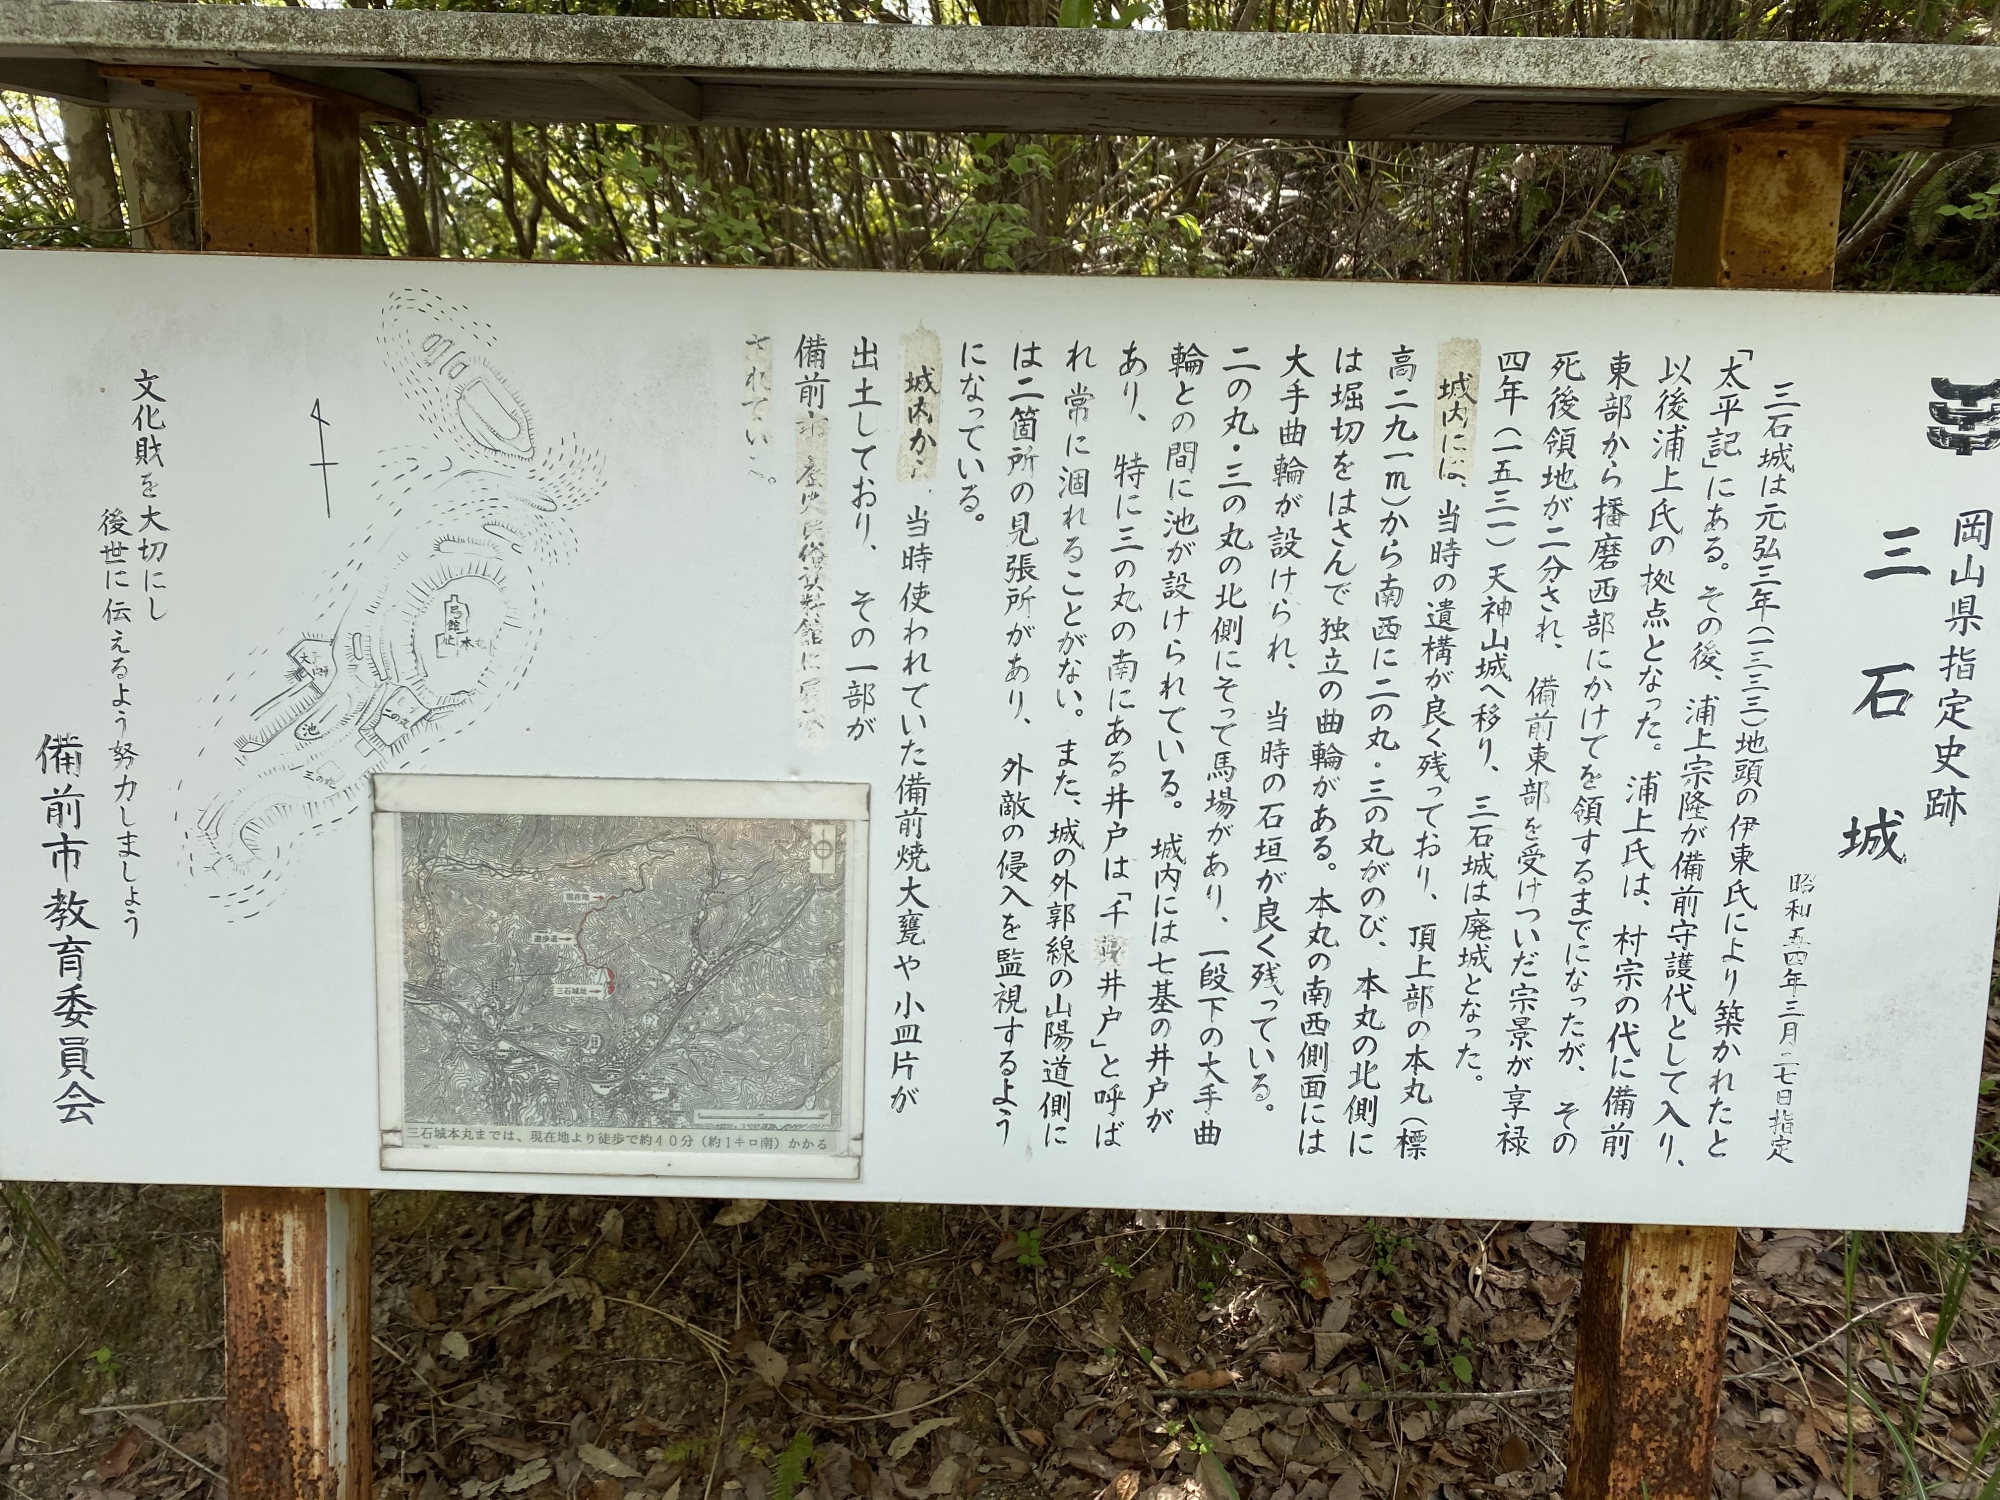 岡山県指定史跡
三石城
昭和五四年三月二七日指定
三石城は元弘三年(一三三三)地頭の伊東氏により築かれたと
「太平記」にある。その後、浦上宗隆が備前守護代として入り、
以後浦上氏の拠点となった。浦上氏は、村宗の代に備前
東部から播磨西部にかけてを領するまでになったが、その
死後領地が二分され、備前東部を受けついだ宗景が享禄
四年(一五三一)天神山城へ移り、三石城は廃城となった。
城内には、当時の遺構が良く残っており、頂上部の本丸(標
高二九一m)から南西に二の丸・三の丸がのび、本丸の北側に
は堀切をはさんで独立の曲輪がある。本丸の南西側面には
大手曲輪が設けられ、当時の石垣が良く残っている。
二の丸・三の丸の北側にそって馬場があり、一段下の大手曲
輪との間に池が設けられている。城内には七基の井戸が
あり、特に三の丸の南にある井戸は「千井戸」と呼ば
れ常に涸れることがない。また、城の外郭線の山陽道側に
は二箇所の見張所があり、外敵の侵入を監視するよう
になっている。
城内か、当時使われていた備前焼大甕や小皿片が
出土しており、その一部が
備前歴史民俗資料館に
されてい。
本丸
二の丸
三の丸
池
現在地→
遊歩道→
三石城址→
三石城本丸までは、現在地より徒歩で約40分(約1キロ南)かかる
文化財を大切にし
後世に伝えるよう努力しましょう
備前市教育委員会